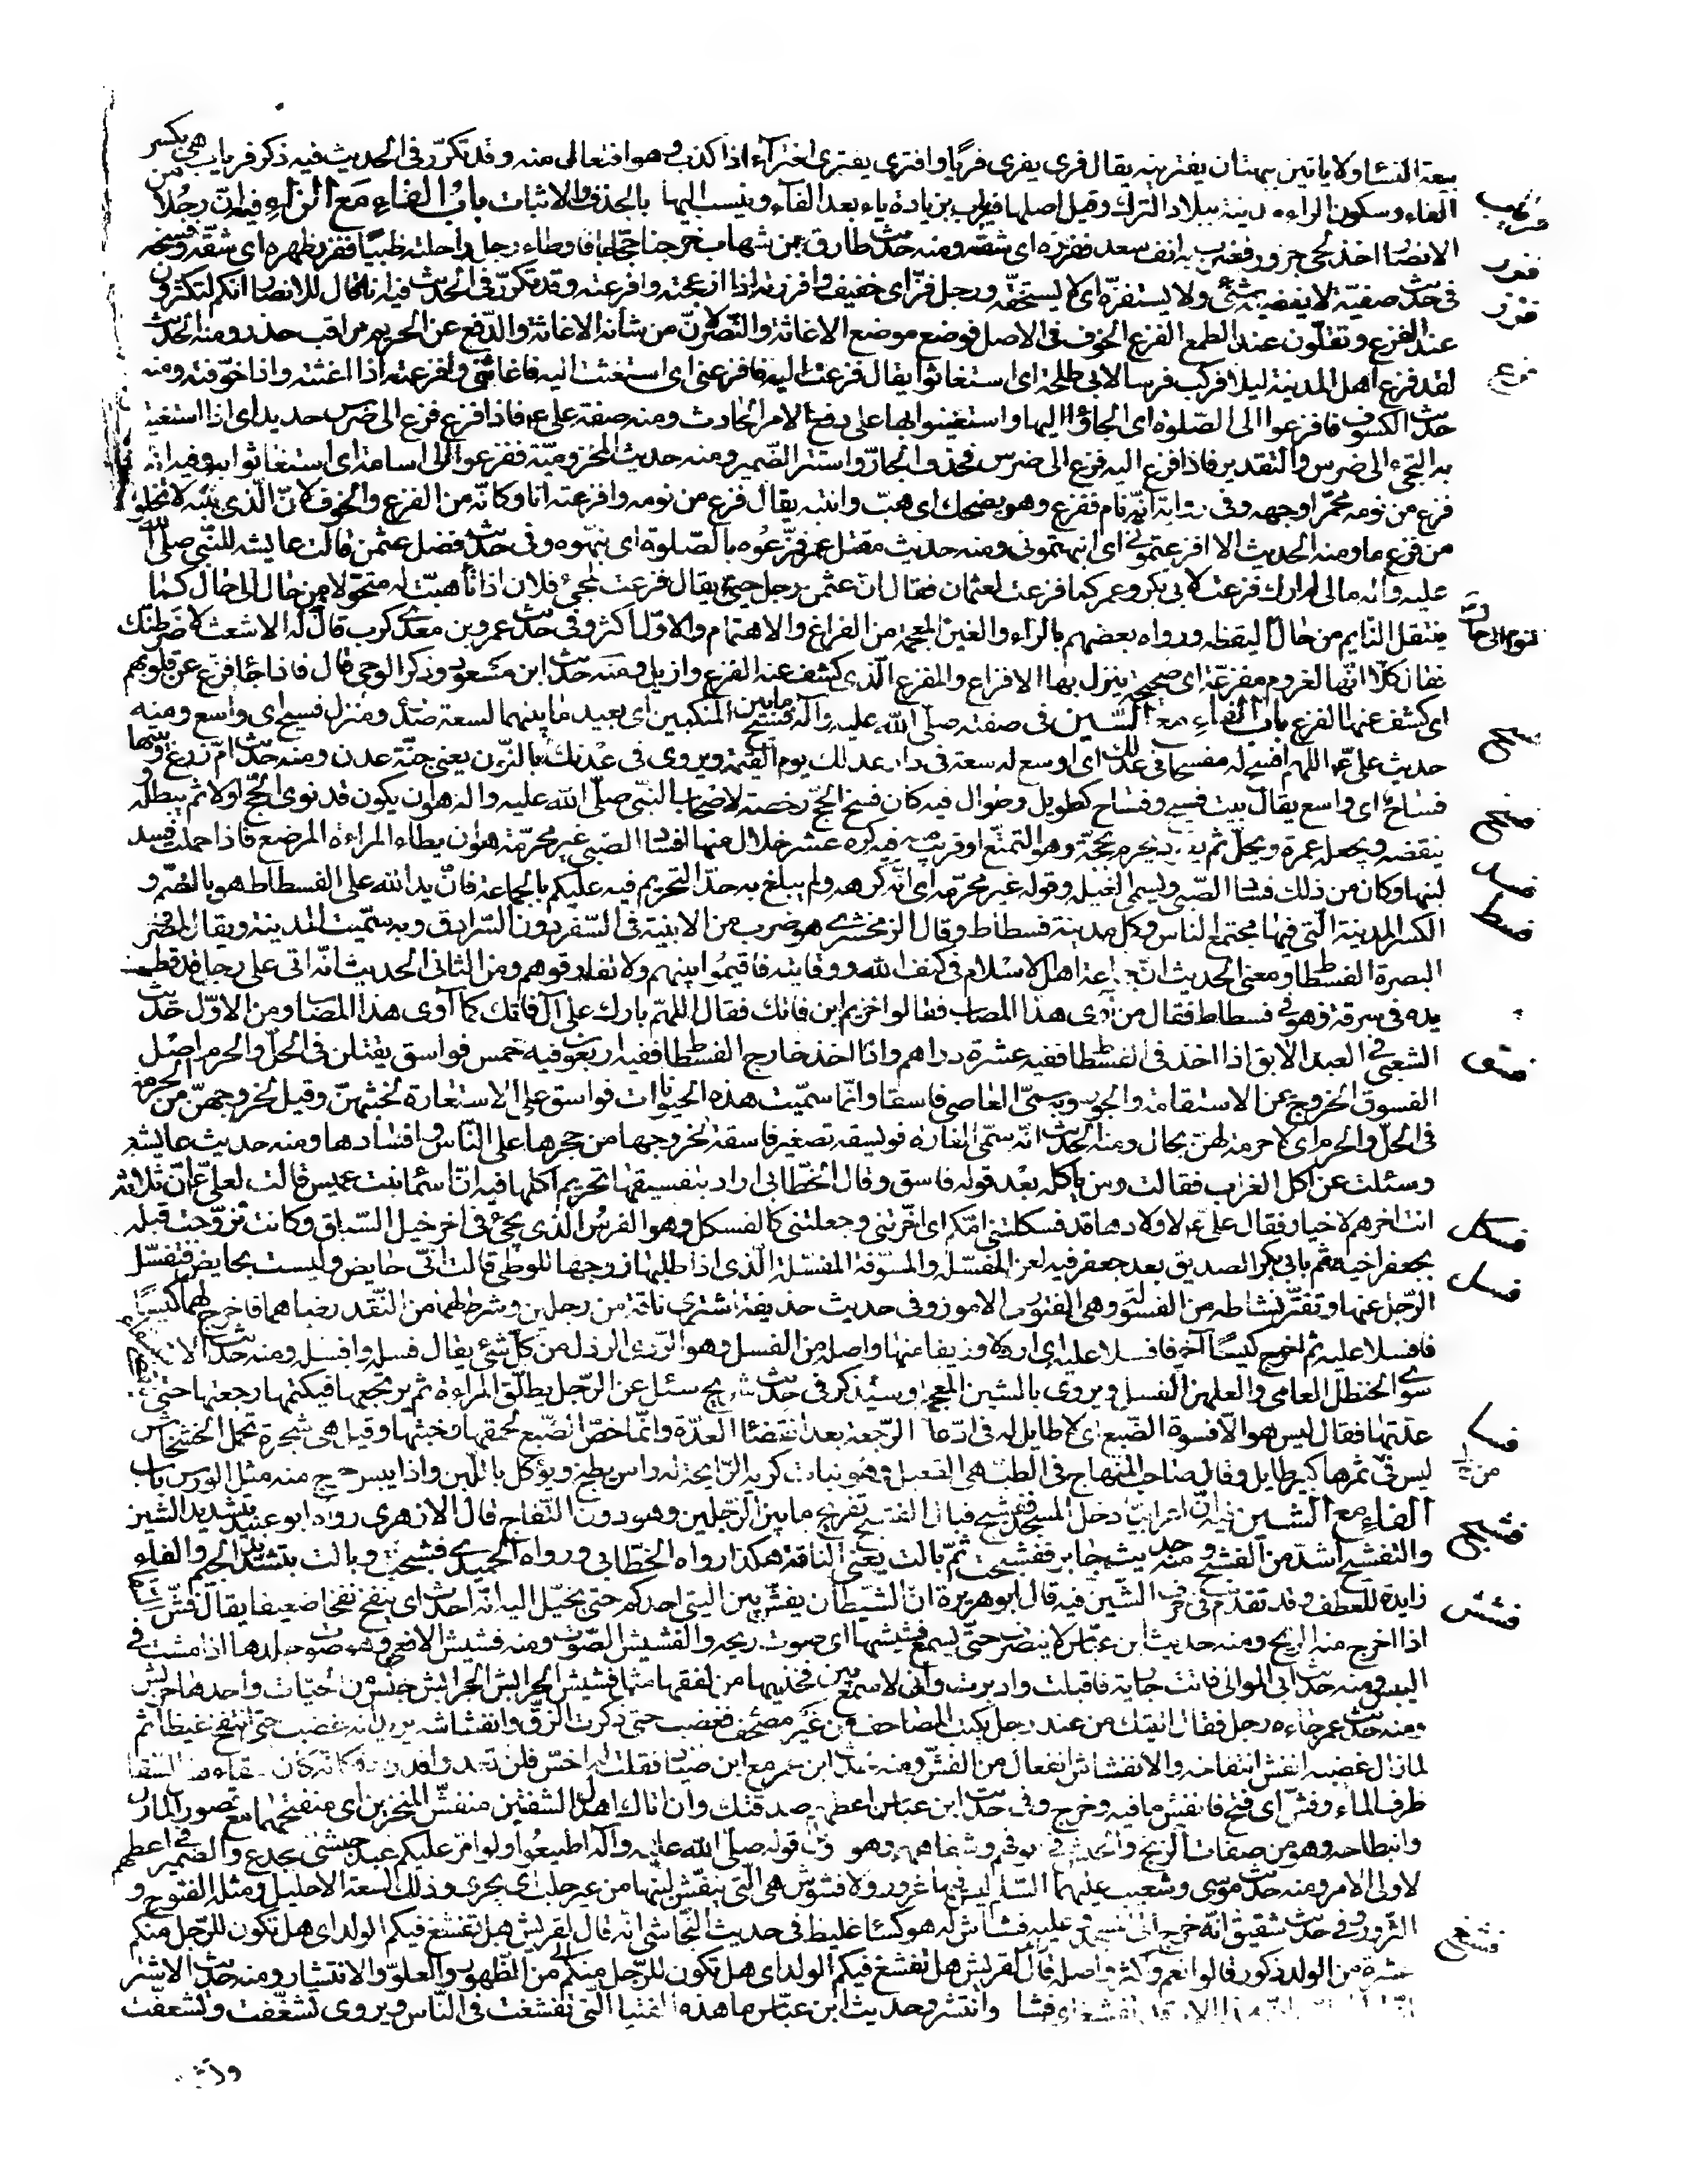 بيعة النساء ولا ياتين ببهتان يفترينه يقال فرى يفرى فريا وافترى يفترى افتراء اذا كذب وهو افتعال منه وقد تكرر فى الحديث فيه ذكر فرياب هى بكسر
الفاء وسكون الراء مدينة ببلاد الترك وقيل اصلها فيرياب بزيادة ياء بعد الفاء وينسب اليها بالحذف والاثبات باب الفاء مع الزاء فيه ان رجلا من
الانصار اخذ لحى جزور فضرب به انف سعد ففزره اى شقه ومنه حديث طارق بن شهاب خرجنا حجاجا فاوطاء رجل راحلته ظبيا ففزر ظهره اى شقه وفسخه
فى حديث صفية لا يغضبه شئ ولا يستفزه اى لا يستخفه ورجل فز اى خفيف وافززته اذا ازعجته وافزعته وقد تكرر فى الحديث فيه انه قال للانصار انكم لتكثرون
عند الفزع وتقلون عند الطمع الفزع الخوف فى الاصل فوضع موضع الاغاثة والنصر لان من شانه الاغاثة والدفع عن الحريم مراقب حذر ومنه الحديث
لقد فزع اهل المدينة ليلا فركب فرسا لابى طلحة اى استغاثوا يقال فزعت اليه فافزعنى اى استغثت اليه فاغاثنى وافزعته اذا اغثته واذا خوفته ومنه
حديث الكسوف فافزعوا الى الصلوة اى الجاؤا اليها واستعينوا بها على دفع الامر الحادث ومنه صفة على ع فاذا فزع فزع الى ضرس حديد اى اذا استغيث
به التجئ الى ضرس والتقدير فاذا فزع اليه فزع الى ضرس فحذف الجار واستتر الضمير ومنه حديث المخزومية ففزعوا الى اسامة اى استغاثوا به وفيه انه
فزع من نومه محمرا وجهه وفى رواية انه نام ففزع وهو يضحك اى هب وانتبه يقال فزع من نومه وافزعته انا وكانه من الفزع والخوف لان الذى ينبه لا يخلو
من فزع ما ومنه الحديث الا افزعتمونى اى انبهتمونى ومنه حديث مقتل عمر فزعوه بالصلوة اى نبهوه وفى حديث فضل عثمن قالت عايشه للنبى صلى الله
عليه وآله مالى لم ارك فزعت لابى بكر وعمر كما فزعت لعثمان فقال ان عثمن رجل حيى يقال فزعت لمجئ فلان اذا تاهبت له متحولا من حال الى حال كما
ينتقل النايم من حال اليقظه ورواه بعضهم بالراء والغين المعجمة من الفراغ والاهتمام والاول اكثر وفى حديث عمرو بن معدى كرب قال له الاشعث لاضرطنك
فقال كلا انها لعزوم مفزعة اى صحيحة ينزل بها الافزاع والمفزع الذى كشف عنه الفزع وازيل ومنه حديث ابن مسعود وذكر الوحى قال فاذا جاء فزع عن قلوبهم
اى كشف عنها الفزع باب الفاء مع السين فى صفته صلى الله عليه وآله فسيح ما بين المنكبين اى بعيد ما بينهما لسعة صدره ومنزل فسيح اى واسع ومنه
حديث على ع اللهم افسح له مفسحا فى عدلك اى اوسع له سعة فى دار عدلك يوم القيمة ويروى فى عدنك بالنون يعنى جنة عدن ومنه حديث ام زرع وبيتها
فساح اى واسع يقال بيت فسيح وفساح كطويل وطوال فيه كان فسخ الحج رخصة لاصحاب النبى صلى الله عليه وآله هو ان يكون قد نوى الحج اولا ثم يبطله و
ينقضه ويجعله عمرة ويحل ثم يحرم بحجة وهو التمتع او قريب منه فيه كره عشر خلال منها افساد الصبى غير محرمة هو ان يطاء المراءة المرضع فاذا حملت فسد
لبنها وكان من ذلك فساد الصبى ويسمى الغيل وقوله غير محرمه اى انه كرهه ولم يبلغ به حد التحريم فيه عليكم بالجماعة فان يد الله على الفسطاط هو بالضم و
الكسر المدينة التى فيها مجتمع الناس وكل مدينة فسطاط وقال الزمخشرى هو ضرب من الابنية فى السفر دون السرادق وبه سميت المدينة ويقال لمصر
البصرة الفسطاط ومعنى الحديث ان جماعة اهل الاسلام فى كنف الله ووقايته فاقيموا بينهم ولا تفارقوهم ومن الثانى الحديث انه اتى على رجل قد قطعت
يده فى سرقة وهو فى فسطاط فقال من آوى هذا المصاب فقالوا خزيم ابن فاتك فقال اللهم بارك على آل فاتك كما آوى هذا المصاب ومن الاول حديث
الشعبى فى العبد الابق اذا اخذ فى الفسطاط ففيه عشرة دراهم واذا اخذ خارج الفسطاط ففيه اربعون فيه خمس فواسق يقتلن فى الحل والحرم اصل
الفسوق الخروج عن الاستقامة والجور وبه سمى العاصى فاسقا وانما سميت هذه الحيوانات فواسق على الاستعارة لخبثهن وقيل لخروجهن من الحرمة
فى الحل والحرم اى لا حرمة لهن بحال ومنه الحديث انه سمى الفارة فويسقة تصغير فاسقة لخروجها من حجرها على الناس وافسادها ومنه حديث عايشه
وسئلت عن اكل الغراب فقالت ومن ياكله بعد قوله فاسق وقال الخطابى اراد بتفسيقها تحريم اكلها فيه ان اسماء بنت عميس قالت لعلى ع ان ثلاثة
انت اخرهم لاخيار فقال على ع لاولادها قد فسكلتنى امكم اى اخرتنى وجعلتنى كالفسكل وهو الفرس الذى يجئ فى اخر خيل السباق وكانت تزوجت قبله
بجعفر اخيه ثم بابى بكر الصديق بعد جعفر فيه لعن المفسلة والمسوفة المفسلة الذى اذا طلبها زوجها للوطى قالت انى حايض وليست بحايض فتفسل
الرجل عنها وتفتر نشاطه من الفسولة وهى الفتور فى الامور وفى حديث حذيفة اشترى ناقة من رجلين وشرط لهما من النقد رضاهما فاخرج لهما كيسا
فافسلا عليه ثم اخرج كيسا آخر فافسلا عليه اى ارذلا وزيفا عنها واصله من الفسل وهو الردى الرذل من كل شئ يقال فسله وافسله ومنه حديث
سوى الحنظل العامى والعلهز الفسل ويروى بالشين المعجمة وسيذكر فى حديث شريح سئل عن الرجل يطلق المراءة ثم يرتجعها فيكتمها رجعتها حتى
عدتها فقال ليس هو الا فسوة الضبع اى لا طايل له فى ادعاء الرجعة بعد انقضاء العدة وانما خص الضبع لحمقها وخبثها وقيل هى شجرة تحمل الخشخاش
ليس فى ثمرها كبير طايل وقال صاحب المنهاج فى الطب هى القعبل وهو نبات كريه الرايحة له راس يطبخ ويؤكل باللبن واذا يبس خرج منه مثل الورس باب
الفاء مع الشين فيه ان اعرابيا دخل المسجد ففشج فبال الفشج تفريج ما بين الرجلين وهو دون التفاج قال الازهرى رواه ابو عبيد بتشديد الشين
والتفشيج اشد من الفشج ومنه حديث جابر ففشجت ثم بالت يعنى الناقة هكذا رواه الخطابى ورواه الحميدى فشجت وبالت بتشديد الجيم والفاء
زايدة للعطف وقد تقدم فى حرف الشين فيه قال ابو هريرة ان الشيطان يفش بين اليتى احدكم حتى يخيل اليه انه احدث اى ينفخ نفخا ضعيفا يقال فش
اذا اخرج منه الريح ومنه حديث ابن عباس لا ينصرف حتى يسمع فشيشها اى صوت ريحه والفشيش الصوت ومنه فشيش الافعى وهو صوت جلدها اذا مشت فى
اليبس ومنه حديث ابى الموالى فاتت جارية فاقبلت وادبرت وانى لاسمع بين فخذيها من لففها مثل فشيش الحرابش الحرابش جنس من الحيات واحدها حربش
ومنه حديث عمر جاءه رجل فقال اتيتك من عند رجل يكتب المصاحف من غير مصحف فغضب حتى ذكرت الزق وانفشاشه يريد انه غضب حتى انتفخ غيظا ثم
لما زال غضبه انفش انتفاخه والانفشاش انفعال من الفش ومنه حديث ابن عمر مع ابن صياد فقلت له اخس فلن تعدو قدرك
ظرف الماء وفش اى فتح فانفش ما فيه وخرج وفى حديث ابن عباس اعطهم صدقتك وان اتاك اهدل الشفتين منفش المنخرين اى منفتحهما مع قصور المارن
وانبطاحه وهو من صفات الزنج والحبش فى انوفهم وشفاههم وهو تاويل قوله صلى الله عليه وآله اطيعوا ولو امر عليكم عبد حبشى مجدع والضمير فى اعطهم
لاولى الامر ومنه حديث موسى وشعيب عليهما السلام ليس فيها عزوز ولا فشوش هى التى ينفش لبنها من غير حلب اى يجرى وذلك لسعة الاحليل ومثله الفتوح و
الثرور وفى حديث شقيق انه خرج الى المسجد وعليه فشاش له هو كساء غليظ فى حديث النجاشى انه قال لقريش هل تفشغ فيكم الولد اى هل تكون للرجل منكم
عشرة من الولد ذكور قالوا نعم واكثر واصله قال لقريش هل تفشغ فيكم الولد اى هل تكون للرجل منكم من الظهور والعلو والانتشار ومنه حديث الاشتر
هذا الامر قد تفشغ اى فشا وانتشر وحديث ابن عباس ما هذه الفتيا التى تفشغت فى الناس ويروى تشغفت وتشعفت
فرياب
فزر
فزز
فزع
فسح
فسخ
فسد
فسط
فسق
فسكل
فسل
فسا
فشج
فشش
فشغ